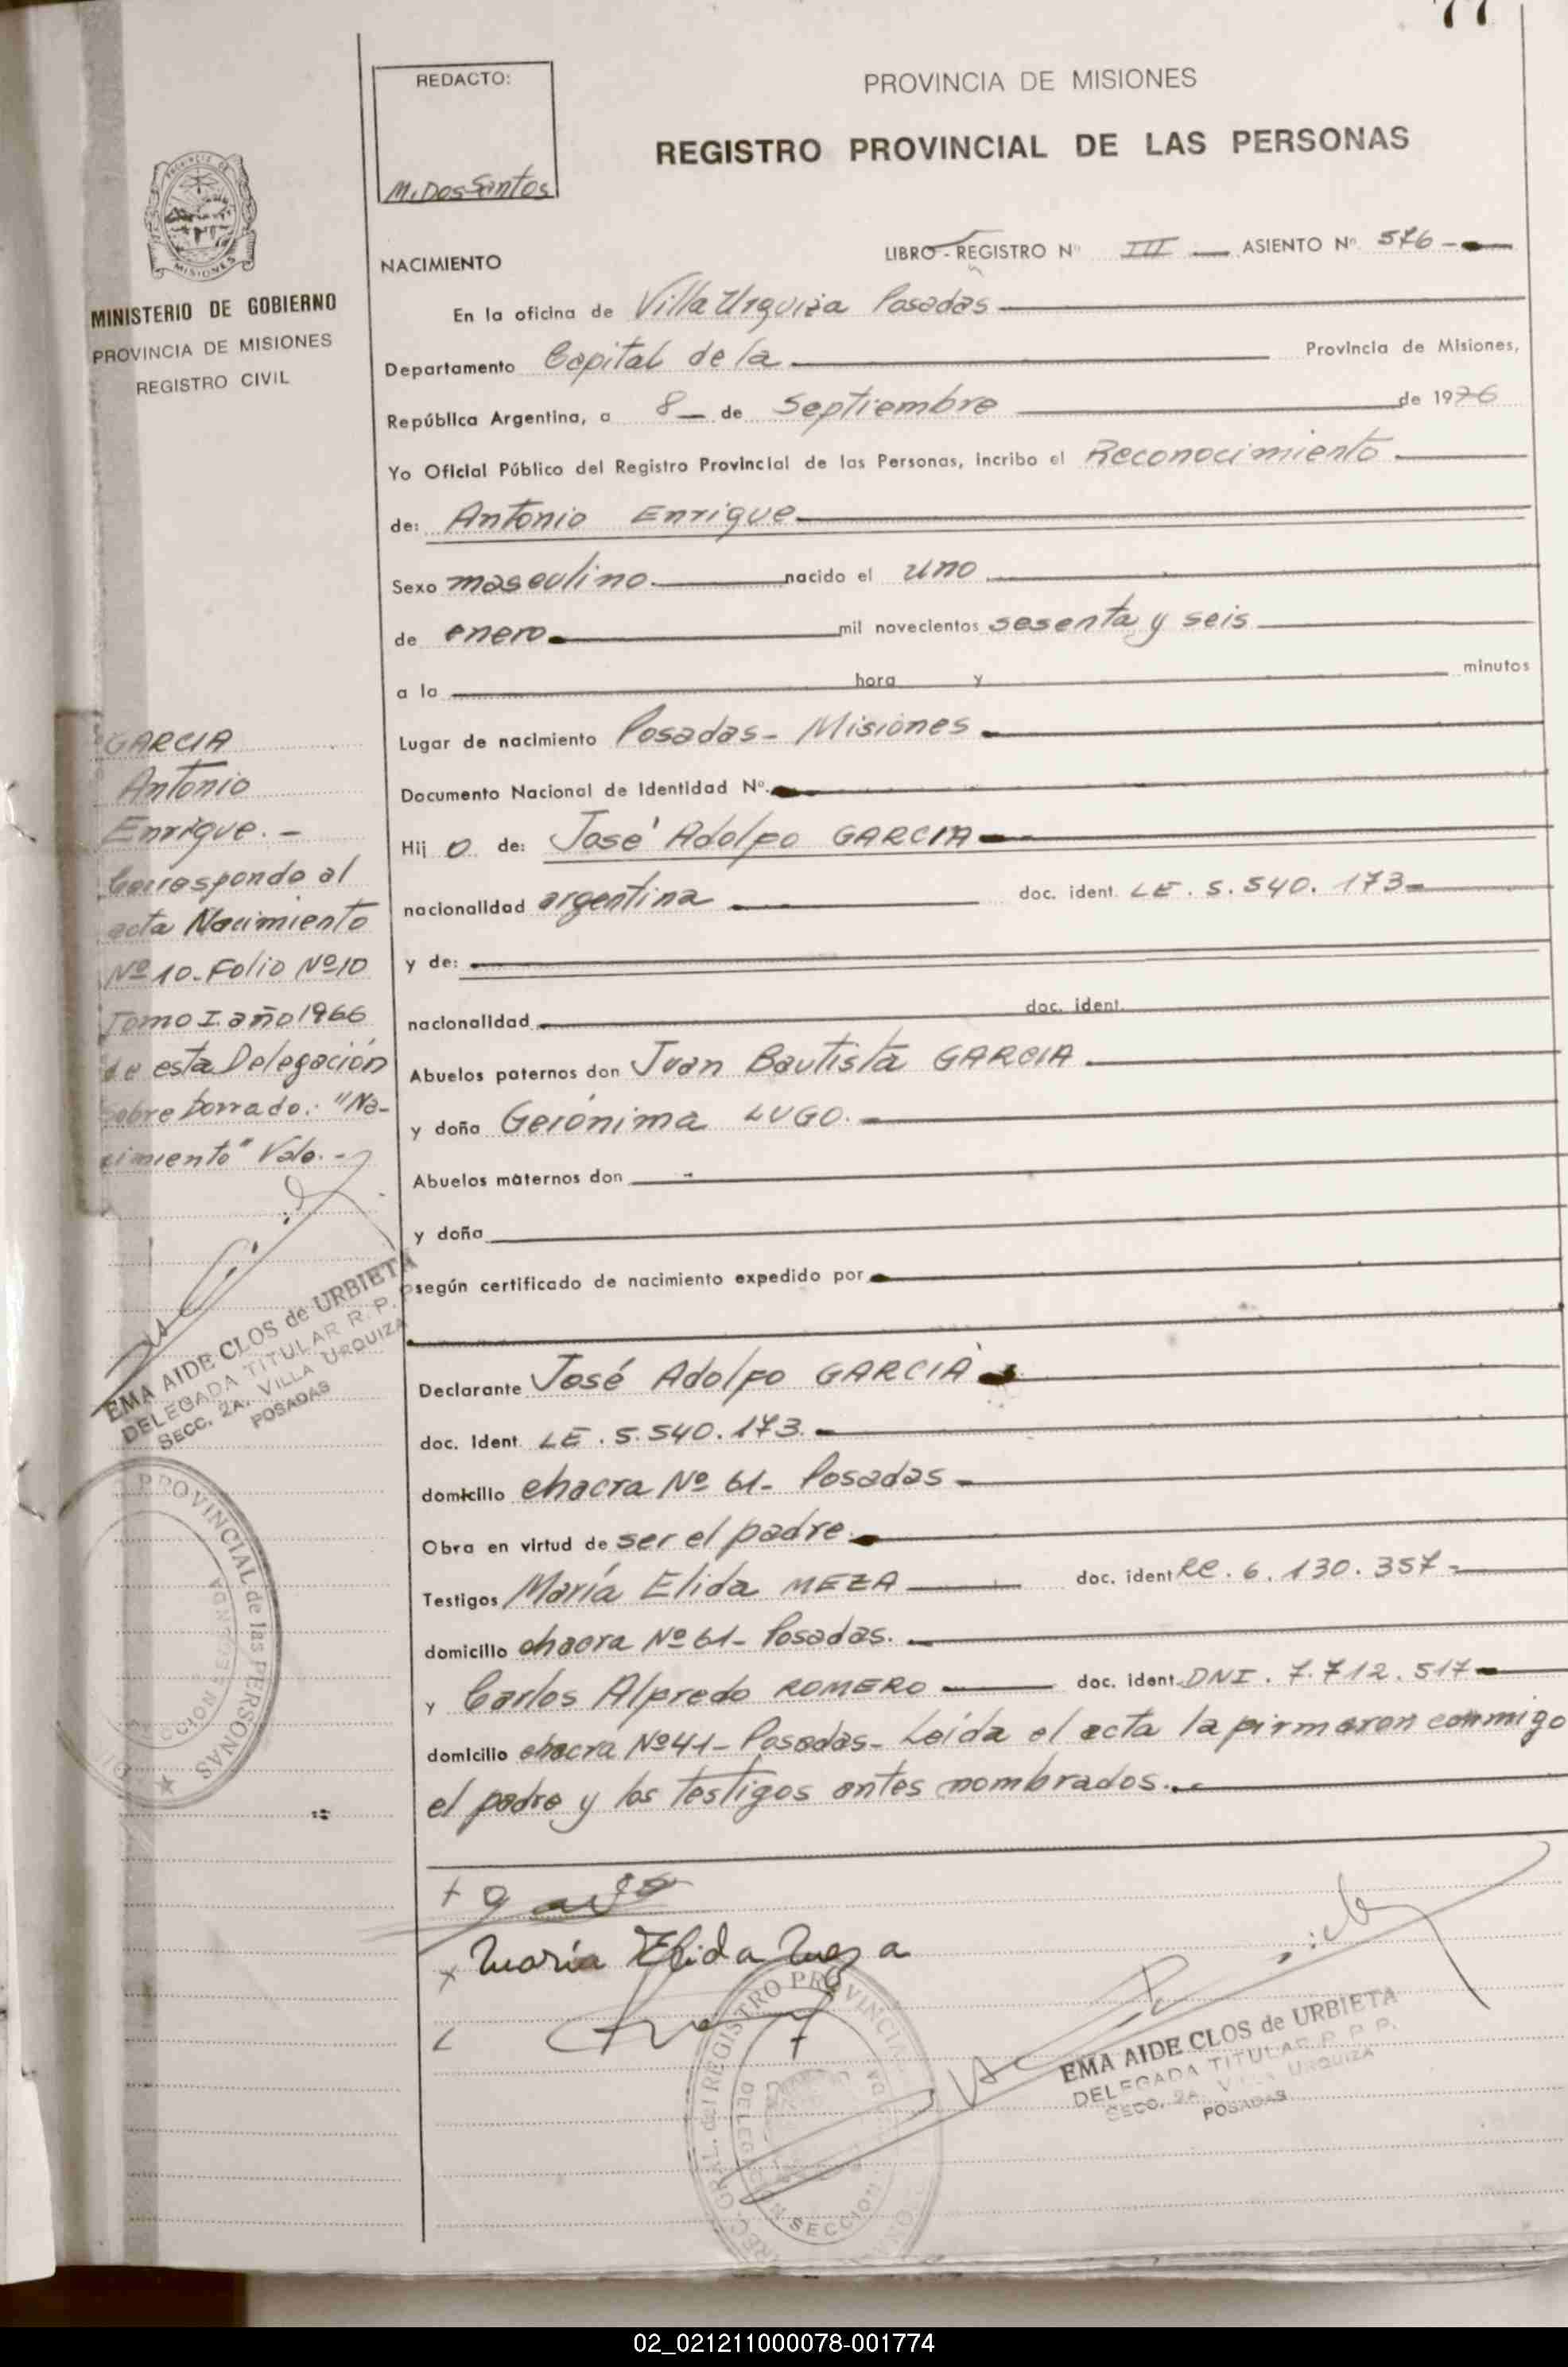 77
REDACTO:
M. Dos Santos
PROVINCIA DE MISIONES
REGISTRO PROVINCIAL DE LAS PERSONAS
MISIONES
MINISTERIO DE GOBIERNO
PROVINCIA DE MISIONES
REGISTRO CIVIL
NACIMIENTO
LIBRO - REGISTRO Nº III — ASIENTO Nº 576 -
En la oficina de Villa Urquiza Posadas
Departamento Capital de la Provincia de Misiones,
República Argentina, a 8 — de Septiembre de 1976
Yo Oficial Público del Registro Provincial de las Personas, incribo el Reconocimiento
de: Antonio Enrique
Sexo masculino. nacido el uno
de enero mil novecientos sesenta y seis
a la hora y minutos
Lugar de nacimiento Posadas - Misiones
Documento Nacional de Identidad Nº.
Hij o de: José Adolfo GARCIA
nacionalidad argentina doc. ident. LE. 5.540.173
y de:
nacionalidad doc. ident.
Abuelos paternos don Juan Bautista GARCIA
y doña Gerónima LUGO.
Abuelos maternos don
y doña
según certificado de nacimiento expedido por
Declarante José Adolfo GARCIA
doc. Ident. LE. 5.540.173.
domicilio chacra Nº 61- Posadas
Obra en virtud de ser el padre.
Testigos María Elida MEZA doc. ident. 6.130.357
domicilio chacra Nº 61- Posadas.
y Carlos Alfredo ROMERO doc. ident. DNI. 7.712.517
domicilio chacra Nº 41- Posadas- Leída el acta la firmaron conmigo
el padre y los testigos antes nombrados.
GARCIA
Antonio
Enrique. -
Corresponde al
acta Nacimiento
Nº 10- Folio Nº 10
Tomo I año 1966
de esta Delegación
Sobre borrado: "Na-
cimiento" Vale. -
EMA AIDE CLOS de URBIETA
DELEGADA TITULAR R. P. P.
SECC. 2A. VILLA URQUIZA
POSADAS
PROVINCIAL de las PERSONAS
María Elida Meza
REC. GRAL. del REGISTRO PROVINCIAL
SECCION
EMA AIDE CLOS de URBIETA
DELEGADA TITULAR R. P. P.
SECC. 2A. VILLA URQUIZA
POSADAS
02_021211000078-001774